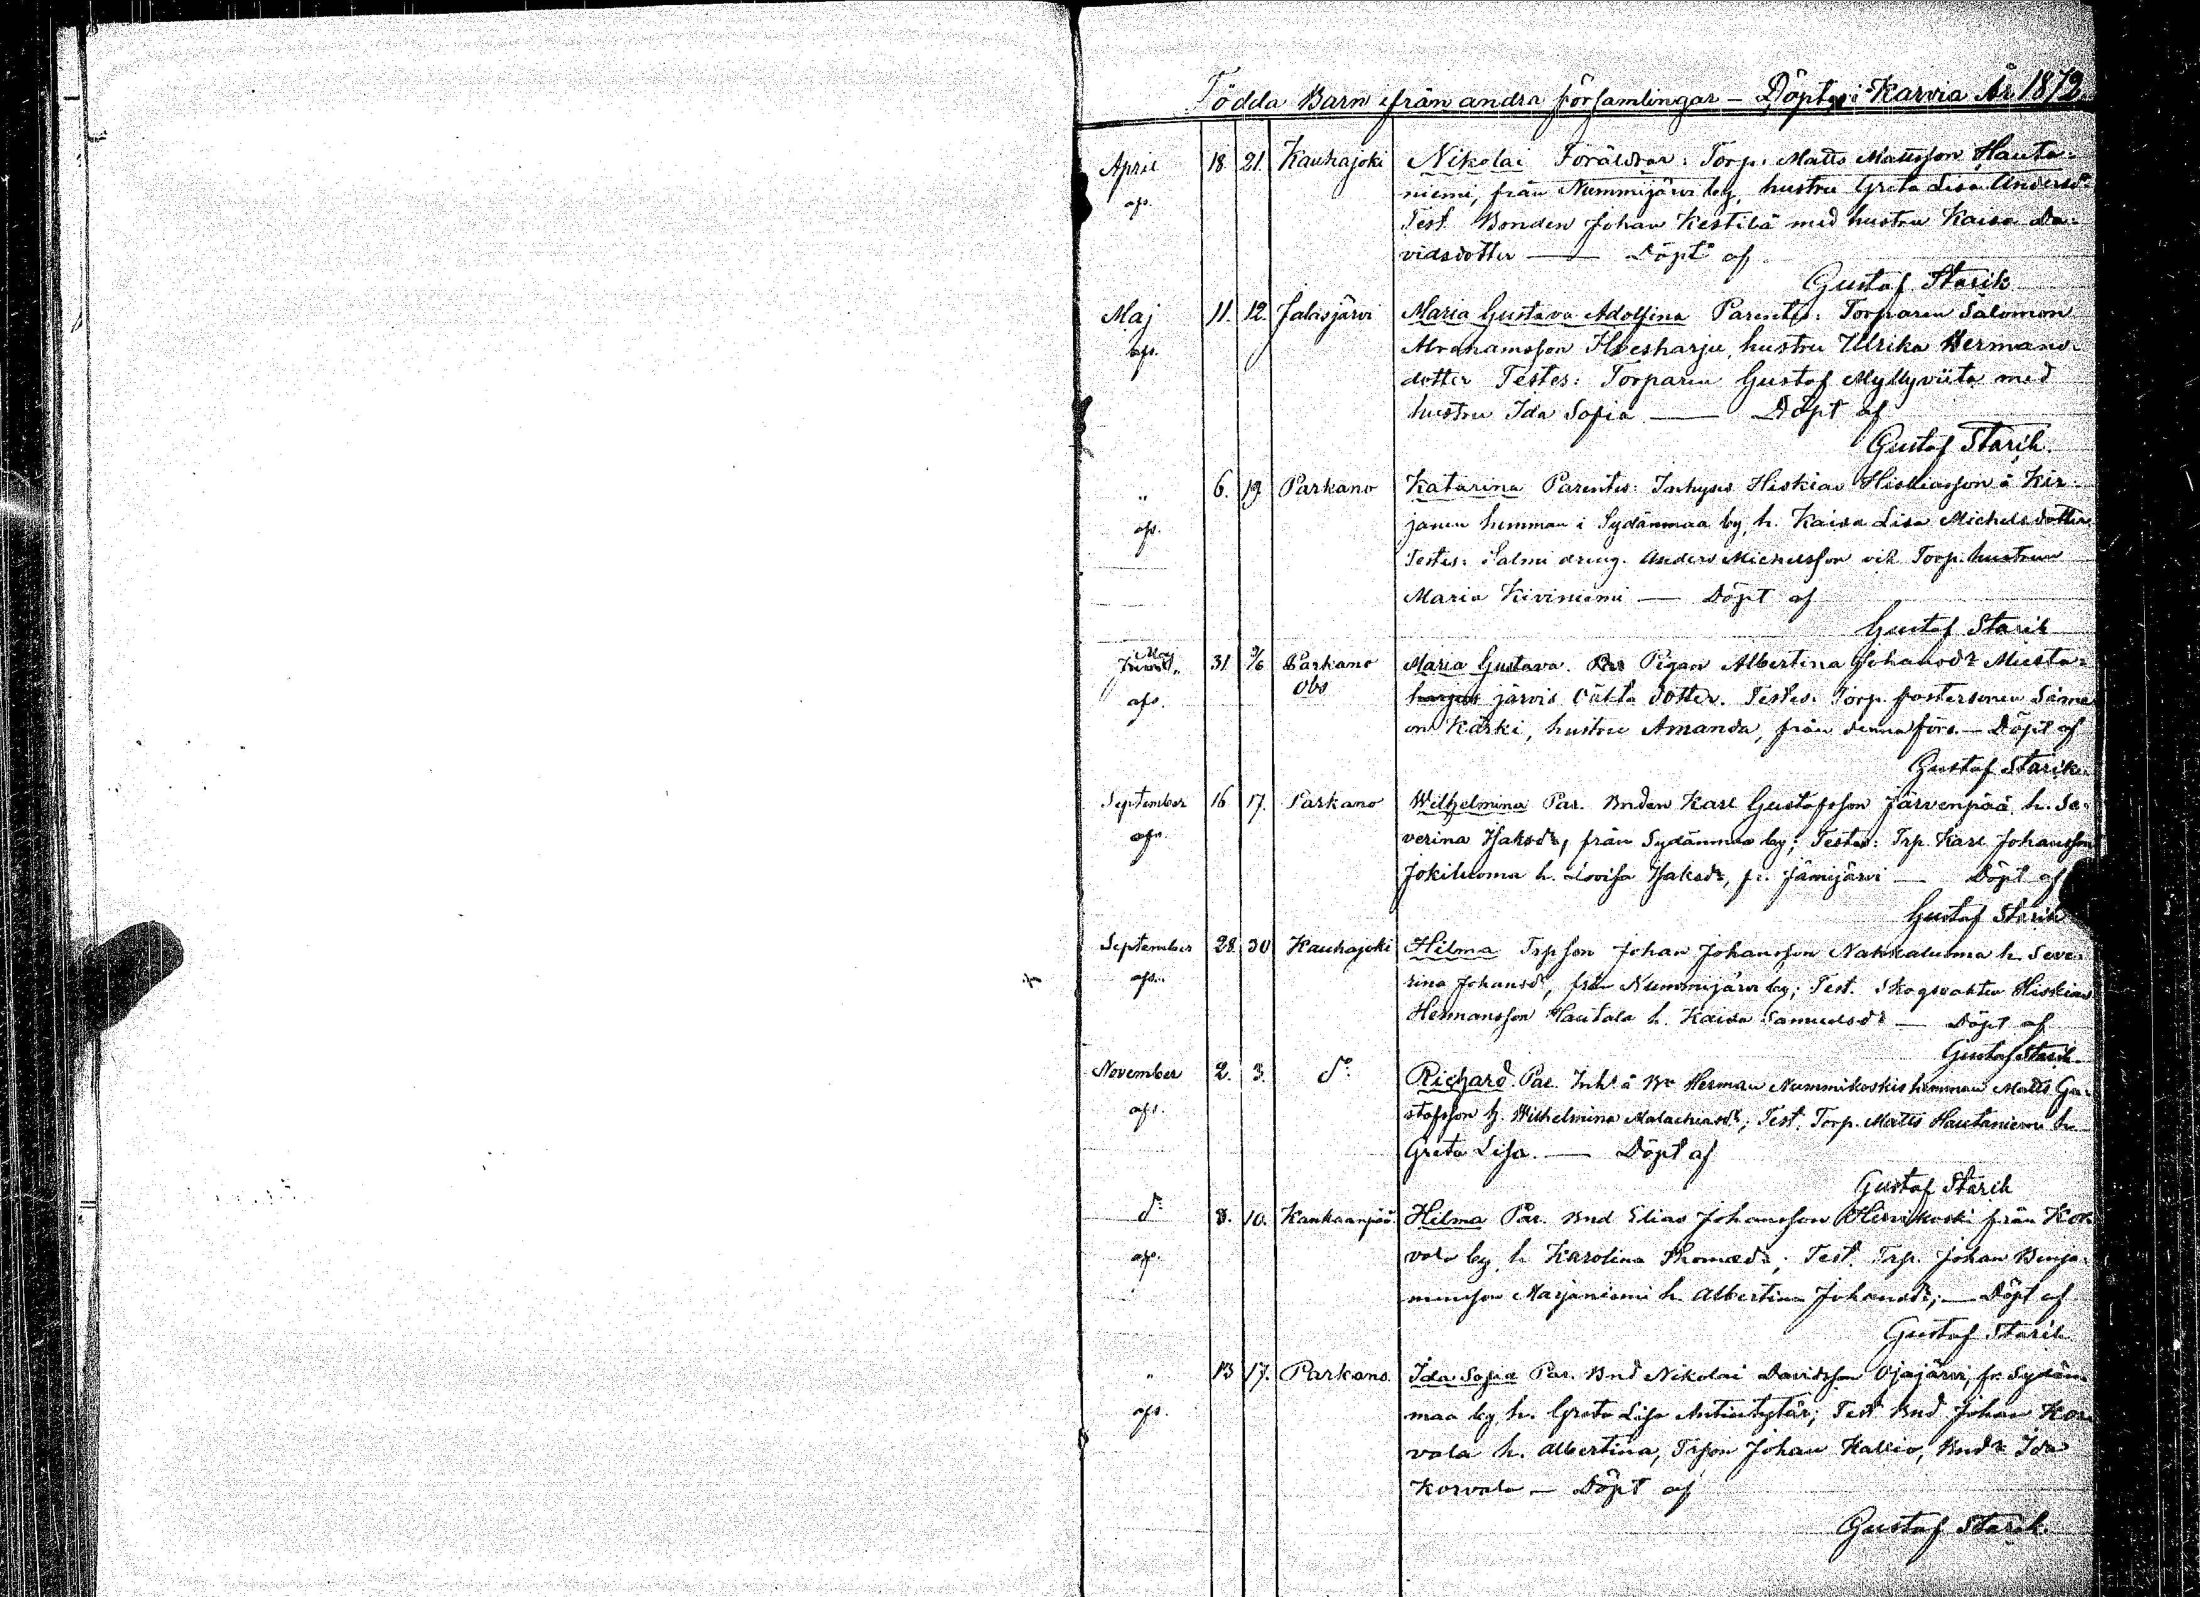 Födda Barn ifrån andra församlingar – Döpte i Karvia År 1872
April 18. 21. Kauhajoki Nikolai Föräldrar: Torp. Matts Mattsson Hauta-
afs. niemi, från Nummijärvi by, hustru Greta Lisa Andersdr
Test. Bonden Johan Kestilä med hustru Kaisa Da-
vidsdotter — Döpt af
Gustaf Starik
Maj 11. 12. Jalasjärvi Maria Gustava Adolfina Parentes: Torparen Salomon
afs. Abrahamsson Ilvesharju, hustru Ulrika Hermans-
dotter Testes: Torparen Gustaf Myllyviita med
hustru Ida Sofia — Döpt af
Gustaf Starik.
" 6. 19 Parkano Katarina Parentes: Inhyses Hiskias Hiskiasson å Kir-
afs. janen hemman i Sydänmaa by, h. Kaisa Lisa Michelsdotter
Testes: Salmi dreng. Anders Michelsson och Torp. hustrun
Maria Kiviniemi — Döpt af
Gustaf Starik
Maj 31. 9/6 Parkano Maria Gustava. Pigan Albertina Johansdr Musta-
afs. Obs järvis oäkta dotter. Testes: Torp. fostersonen Same
on Kärki, hustru Amanda, från denna förs. — Döpt af
Gustaf Starik
September 16 17. Parkano Wilhelmina Par. Bnden Karl Gustafsson Järvenpää h. Se-
afs. verina Isaksdr, från Sydänmaa by; Testes: Trp. Karl Johansson
Jokiluoma h. Lovisa Isaksdr, fr. Jämijärvi — Döpt af
Gustaf Starik
September 28. 30 Kauhajoki Hilma Trpson Johan Johansson Nakkaluoma h. Seve-
afs. rina Johansdr, från Nummijärvi by; Test. Skogsvakten Hiskias
Hermansson Hautala h. Kaisa Samuelsdr — Döpt af
Gustaf Starik.
November 2. 3. do Richard. Par. Inh. å Bn Herman Nummikoskis hemman Matts Gu-
afs. stafsson h. Wilhelmina Malachiasdr; Test. Torp. Matts Hautaniemi h.
Greta Lisa. — Döpt af
Gustaf Starik
do 8. 10. Kankaanpää Hilma Par. Bnd Elias Johansson från Kor
afs. vala by, h. Karolina Thomasdr; Test. Trp. Johan Benja-
minsson Marjaniemi h. Albertina Johansdr; — Döpt af
Gustaf Starik
" 13 17. Parkano. Ida Sofia Par. Bnd Nikolai Davidsson Ojajärvi, fr. Sydän-
afs. maa by h. Greta Lisa Antintytär; Test Bnd Johan Kor
vala h. Albertina, Trpson Johan Kallio, Bndr Ida
Korvala — Döpt af
Gustaf Starik.